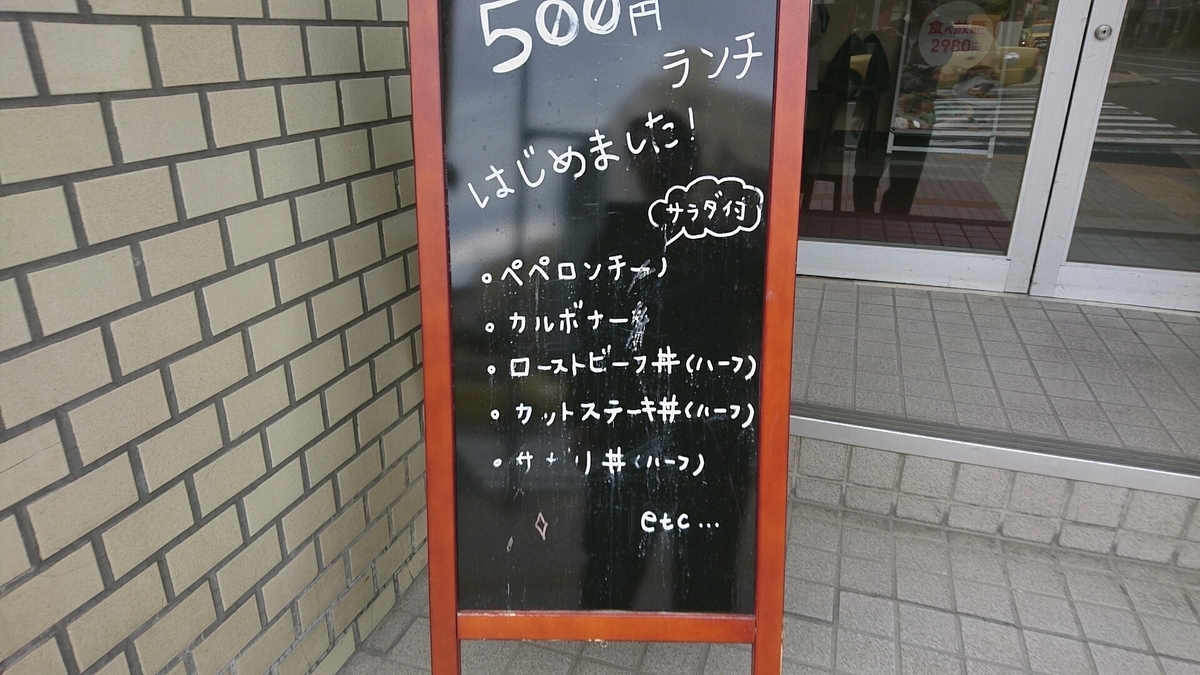 500円
ランチ
はじめました!
サラダ付
・ペペロンチーノ
・カルボナー
・ローストビーフ丼(ハーフ)
・カットステーキ丼(ハーフ)
・丼(ハーフ)
etc...
食べ放題
2980